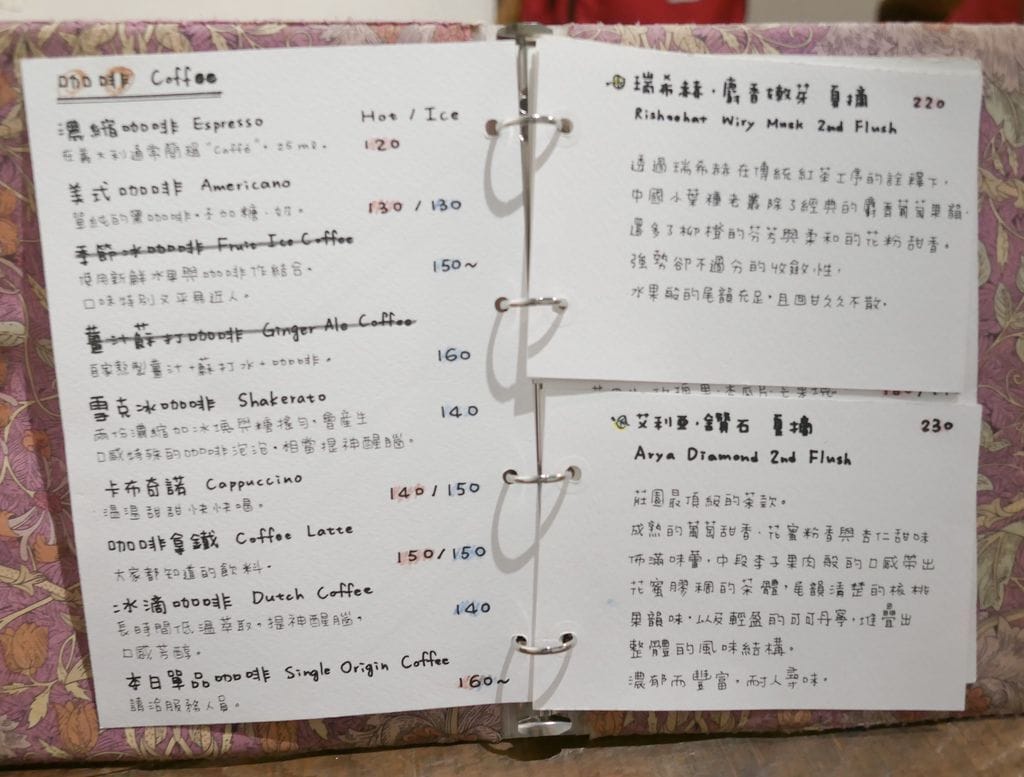 咖啡 Coffee
Hot / Ice
濃縮咖啡 Espresso
在義大利通常簡稱"Caffé"。25ml。 120
美式咖啡 Americano
單純的黑咖啡。不加糖、奶。 130 / 130
季節冰咖啡 Fruit Ice Coffee
使用新鮮水果與咖啡作結合。 150~
口味特別又平易近人。
薑汁蘇打咖啡 Ginger Ale Coffee
自家熬製薑汁+蘇打水+咖啡。 160
雪克冰咖啡 Shakerato
兩份濃縮加冰塊與糖搖勻,會產生 140
口感特殊的咖啡泡泡,相當提神醒腦。
卡布奇諾 Cappuccino
溫溫甜甜快快喝。 140 / 150
咖啡拿鐵 Coffee Latte
大家都知道的飲料。 150/150
冰滴咖啡 Dutch Coffee
長時間低溫萃取,提神醒腦, 140
口感芳醇。
本日單品咖啡 Single Origin Coffee
請洽服務人員。 160~
瑞希赫·麝香嫩芽 夏摘 220
Risheehat Wiry Musk 2nd Flush
透過瑞希赫在傳統紅茶工序的詮釋下,
中國小葉種老叢除了經典的麝香葡萄果韻,
還多了柳橙的芬芳與柔和的花粉甜香。
強勢卻不過分的收斂性,
水果酸的尾韻充足,且回甘久久不散。
艾利亞·鑽石 夏摘 230
Arya Diamond 2nd Flush
莊園最頂級的茶款。
成熟的葡萄甜香、花蜜粉香與杏仁甜味
佈滿味蕾,中段李子果肉般的口感帶出
花蜜膠稠的茶體,尾韻清楚的核桃
果韻味,以及輕盈的可可丹寧,堆疊出
整體的風味結構。
濃郁而豐富,耐人尋味。